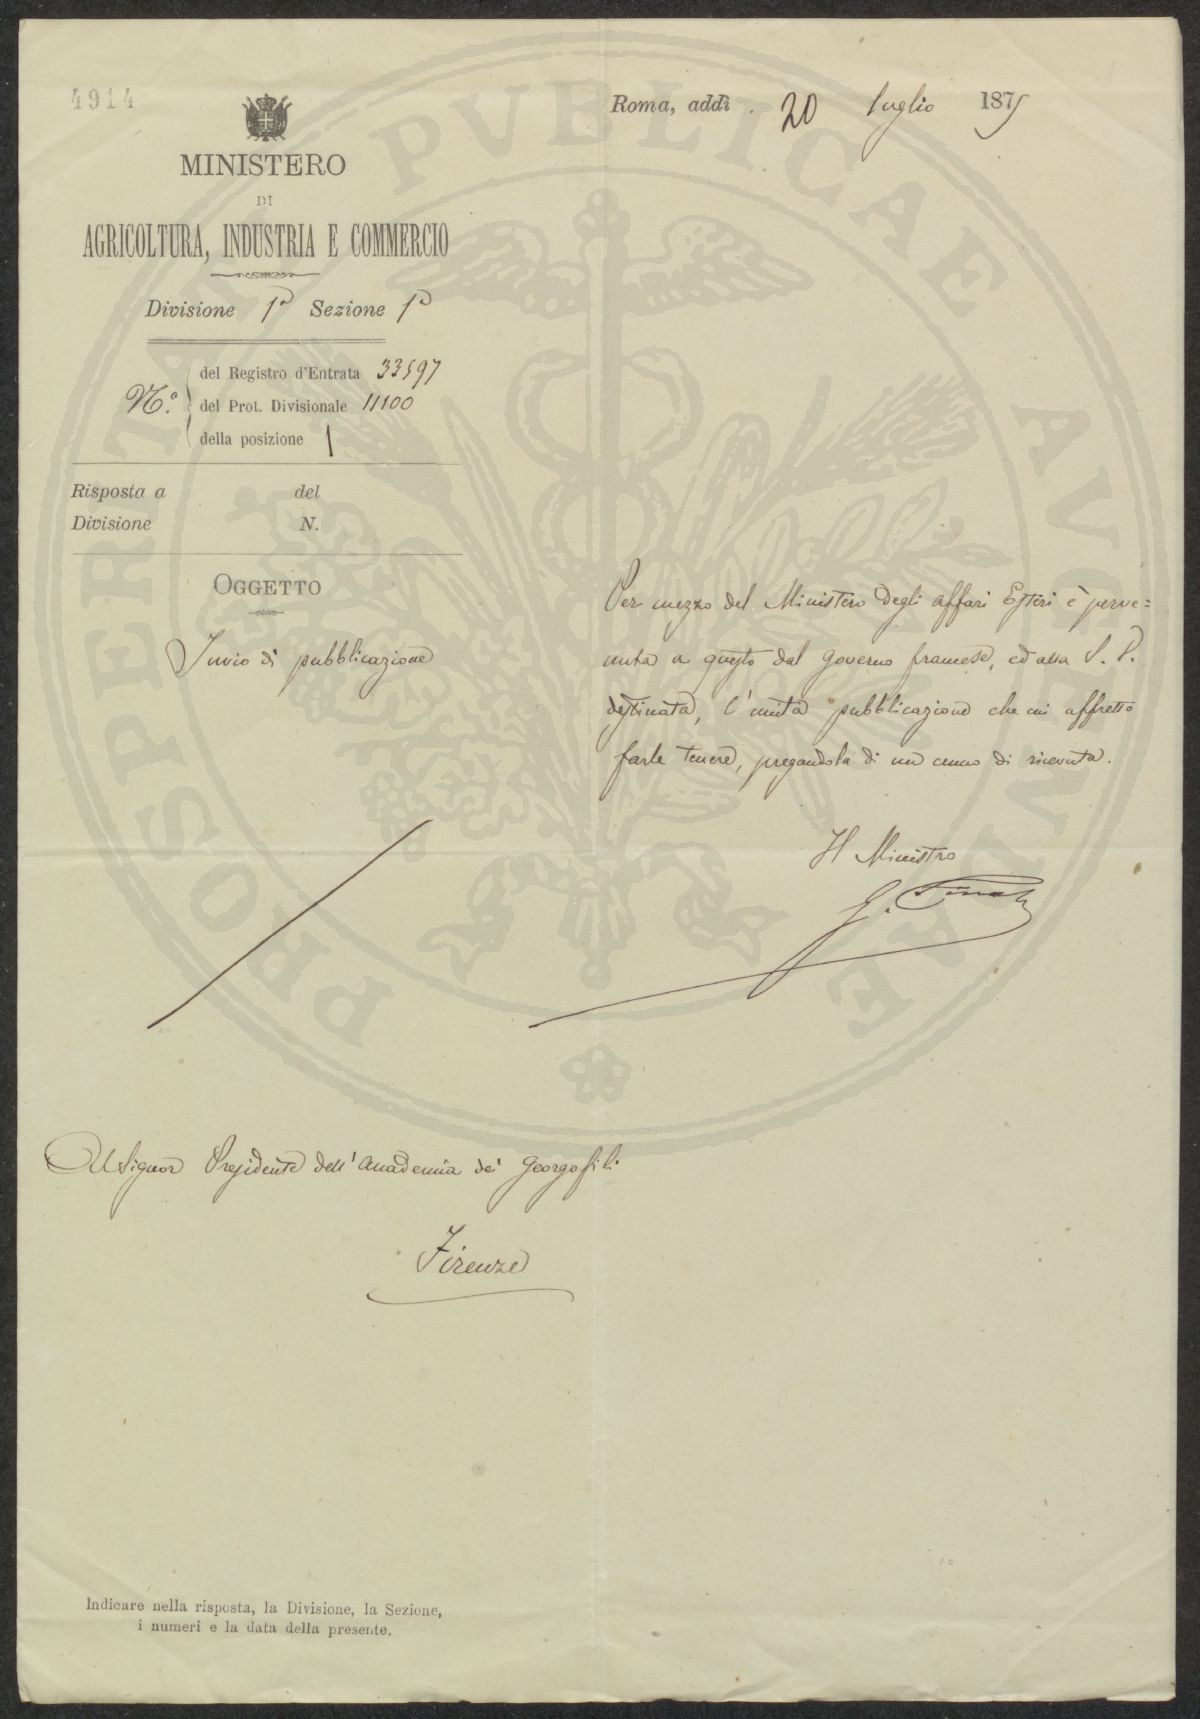 4914
Roma, addì 20 luglio 1875
MINISTERO
DI
AGRICOLTURA, INDUSTRIA E COMMERCIO
Divisione 1ª Sezione 1ª
N.º
del Registro d'Entrata 33597
del Prot. Divisionale 11100
della posizione 1
Risposta a del
Divisione N.
OGGETTO
Invio di pubblicazione
Per mezzo del Ministero degli affari Esteri è perve=
nuta a questo dal Governo francese, ed alla S. V.
destinata, l'unita pubblicazione che mi affretto
farle tenere, pregandola di un cenno di ricevuta.
Il Ministro
G. Finali
Al Signor Presidente dell'Accademia de' Georgofili
Firenze
Indicare nella risposta, la Divisione, la Sezione,
i numeri e la data della presente.
PROSPERITATI PVBLICAE AVGENDAE